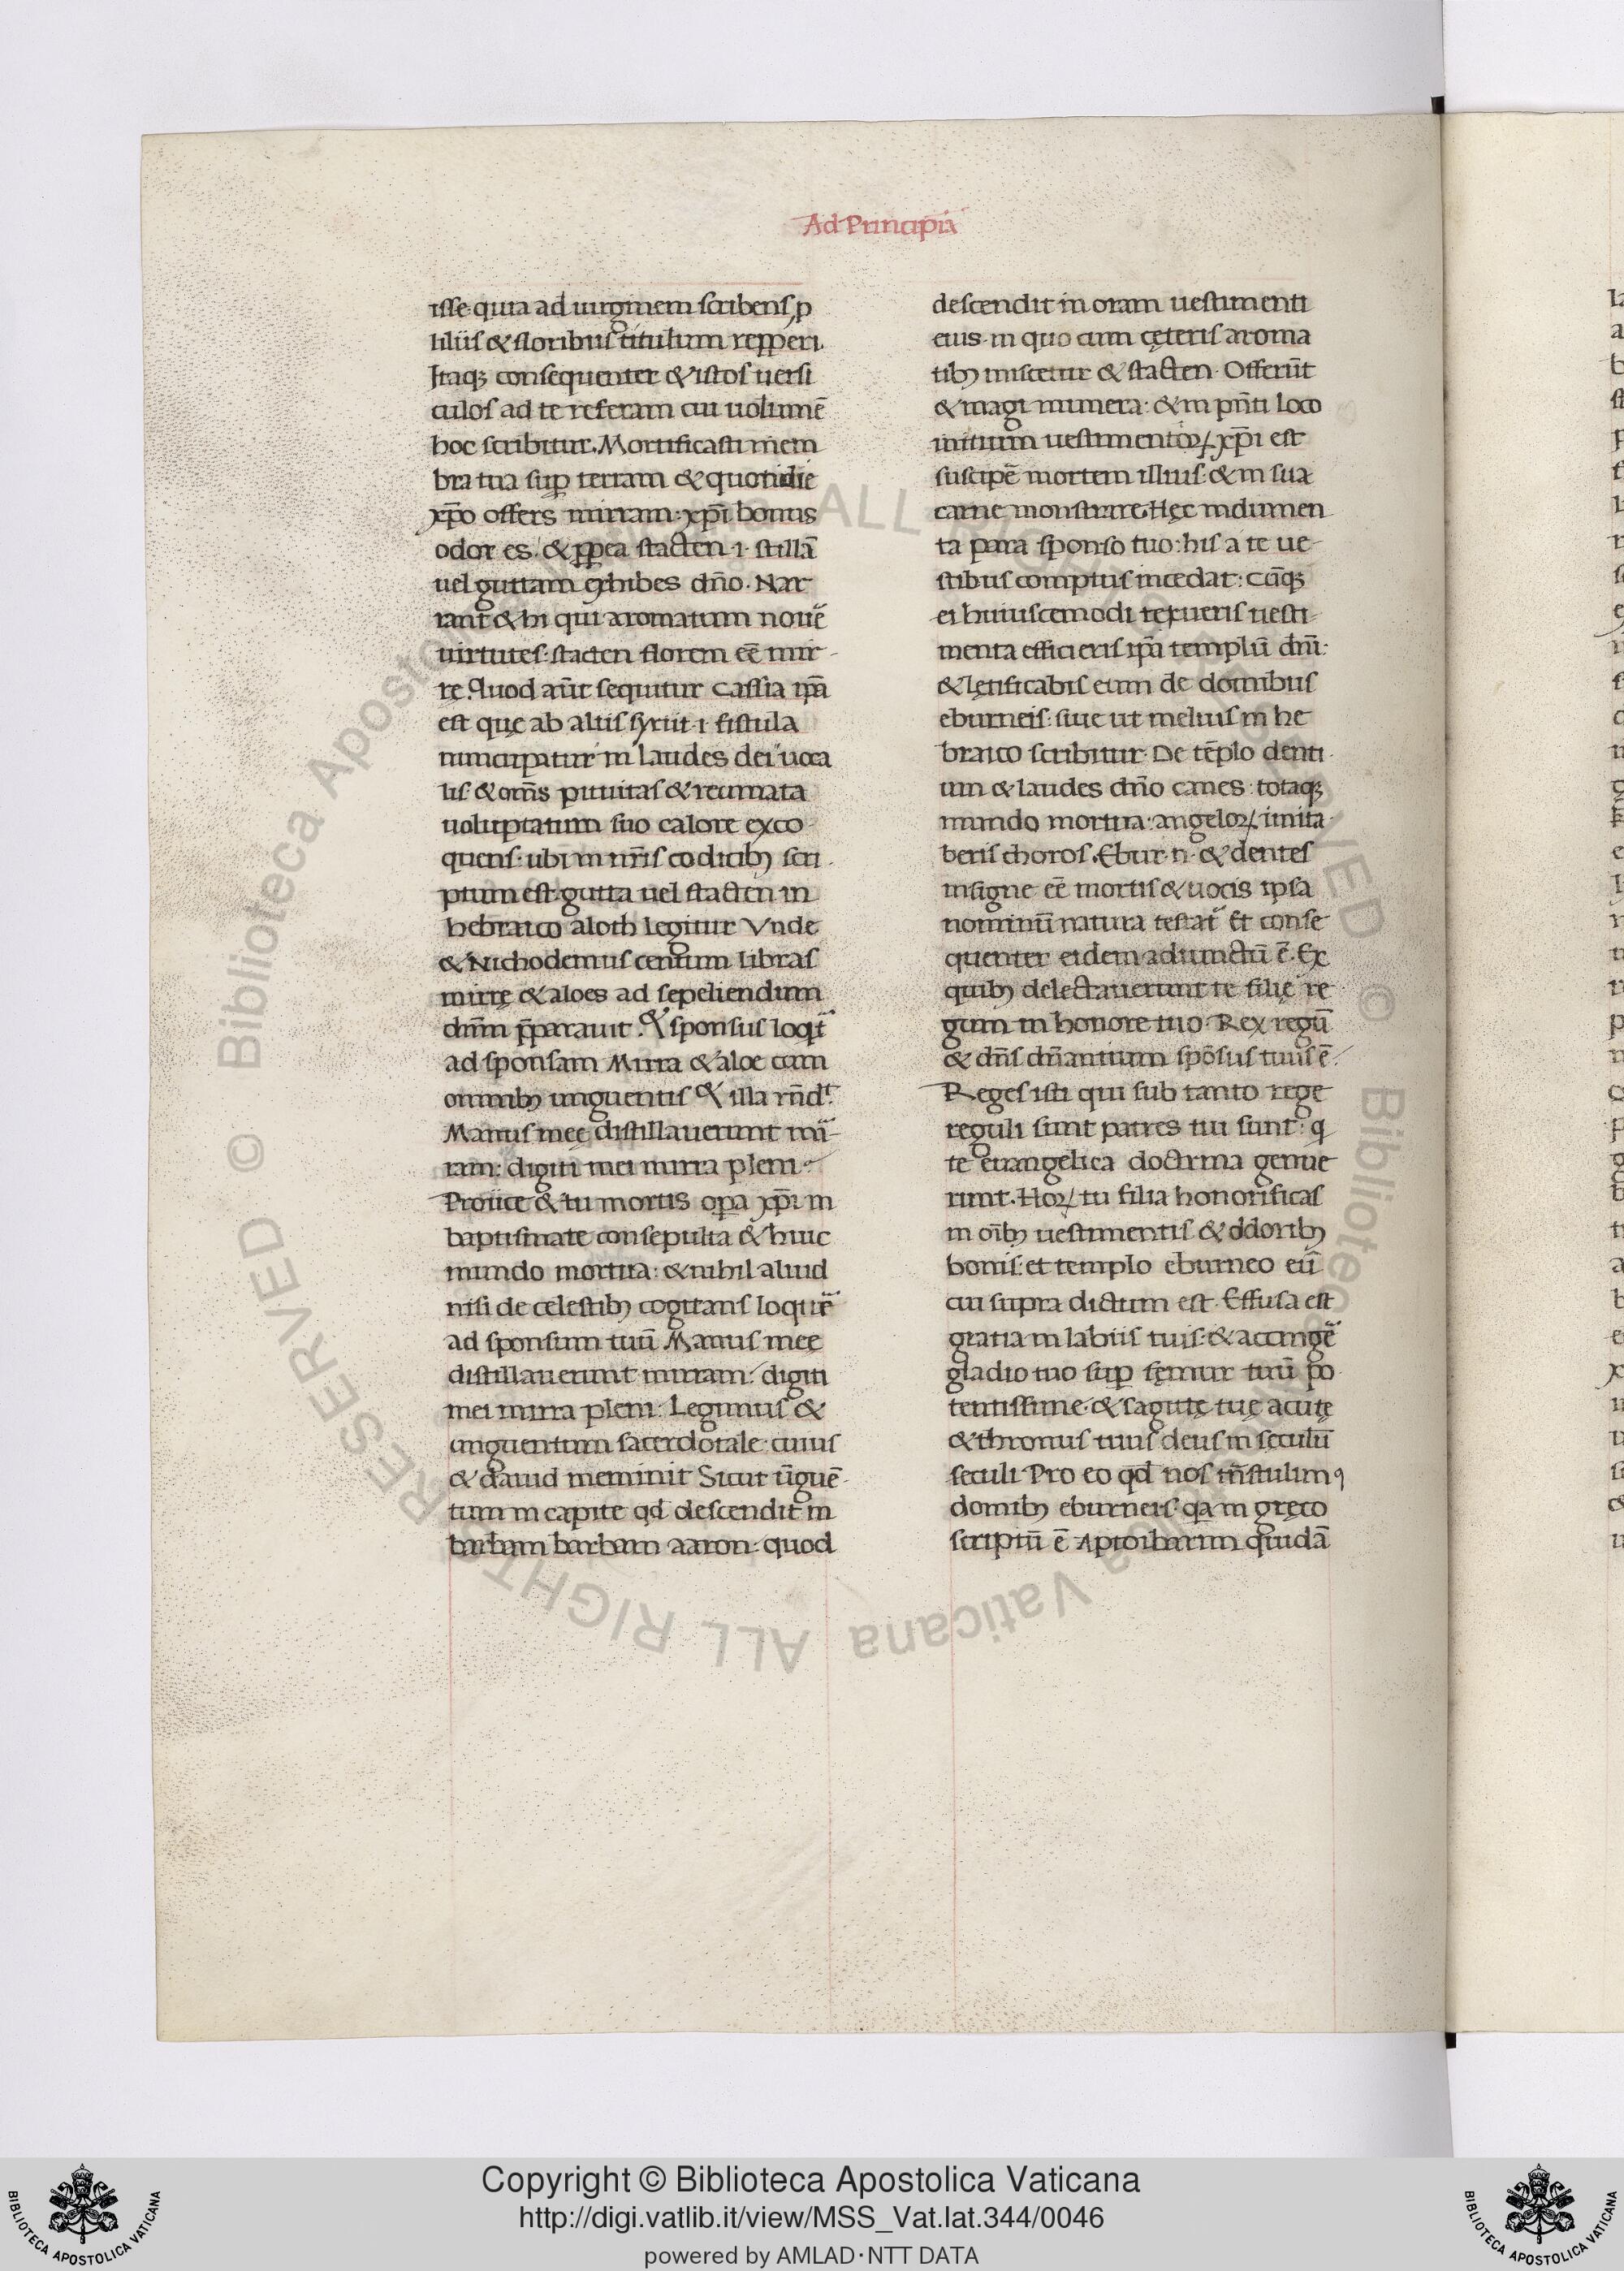 Ad Principiā
isse quia ad uirginem scribens, p
liliis & floribus titulum repperi.
Itaqꝫ consequenter & istos uersi
culos ad te referam cui uolumē
hoc scribitur. Mortificasti mem
bra tua suꝑ terram & quotidie
xp̄o offers mirram: xp̄i bonus
odor es. & ꝓpea stacten .i. stillā
uel guttam exhibes dn̄o. Nar
rant & hi qui aromatum nouē
uirtutes: stacten florem eē mir-
rę. Quod aūt sequitur Cassia ip̄a
est quę ab aliis syrin .i. fistula
nuncupatur in laudes dei uoca
lis & om̄s pituitas & reumata
uoluptatum suo calore exco-
quens: ubi in nr̄is codicibꝫ scri-
ptum est gutta uel stacten in
hebraico aloth legitur Vnde
& Nichodemus centum libras
mirrę & aloes ad sepeliendum
dn̄m p̄parauit. Et sponsus loqt̄
ad sponsam Mirra & aloe cum
omnibꝫ unguentis Et illa rn̄dt.
Manus meę distillauerunt mir-
ram: digiti mei mirra pleni
Proiice & tu mortis oꝑa xp̄i in
baptismate consepulta & huic
mundo mortua: & nihil aliud
nisi de celestibꝫ cogitans loquē
ad sponsum tuū Manus meę
distillauerunt mirram: digiti
mei mirra pleni: Legimus &
unguentum sacerdotale cuius
& dauid meminit Sicut ūguē-
tum in capite qd̄ descendit in
barbam barbam aaron: quod
descendit in oram uestimenti
eius. in quo cum cęteris aroma
tibꝫ miscetur & stacten. Offerūt
& magi munera: & in pn̄ti loco
initium uestimentoꝝ xp̄i est
suscipē mortem illius: & in sua
carne monstrare. Hęc indumen
ta para sponso tuo: his a te ue-
stibus comptus incedat: Cūqꝫ
ei huiuscemodi texueris uesti-
menta efficieris ip̄a templū dn̄i:
& lętificabis eum de domibus
eburneis: siue ut melius in he
braico scribitur. De tēplo denti
um & laudes dn̄o canes: totaqꝫ
mundo mortua: angeloꝝ imita
beris choros. Ebur .n. & dentes
insigne eē mortis & uocis ipsa
nominū natura testat. Et conse
quenter eidem adiunctū ē. Ex
quibꝫ delectauerunt te filię re
gum in honore tuo. Rex regū
& dn̄s dn̄antium spōsus tuus ē.
Reges isti qui sub tanto rege
reguli sunt patres tui sunt: q
te euangelica doctrina genue
runt. Hoꝝ tu filia honorificas
in oībꝫ uestimentis & odoribꝫ
bonis: et templo eburneo eū
cui supra dictum est. Effusa est
gratia in labiis tuis: & accingē
gladio tuo suꝑ femur tuū po
tentissime. & sagittę tuę acutę
& thronus tuus deus in seculū
seculi Pro eo qd̄ nos tn̄stulimꝯ
domibꝫ eburneis: qa in gręco
scriptū ē Aptoibarim quidā